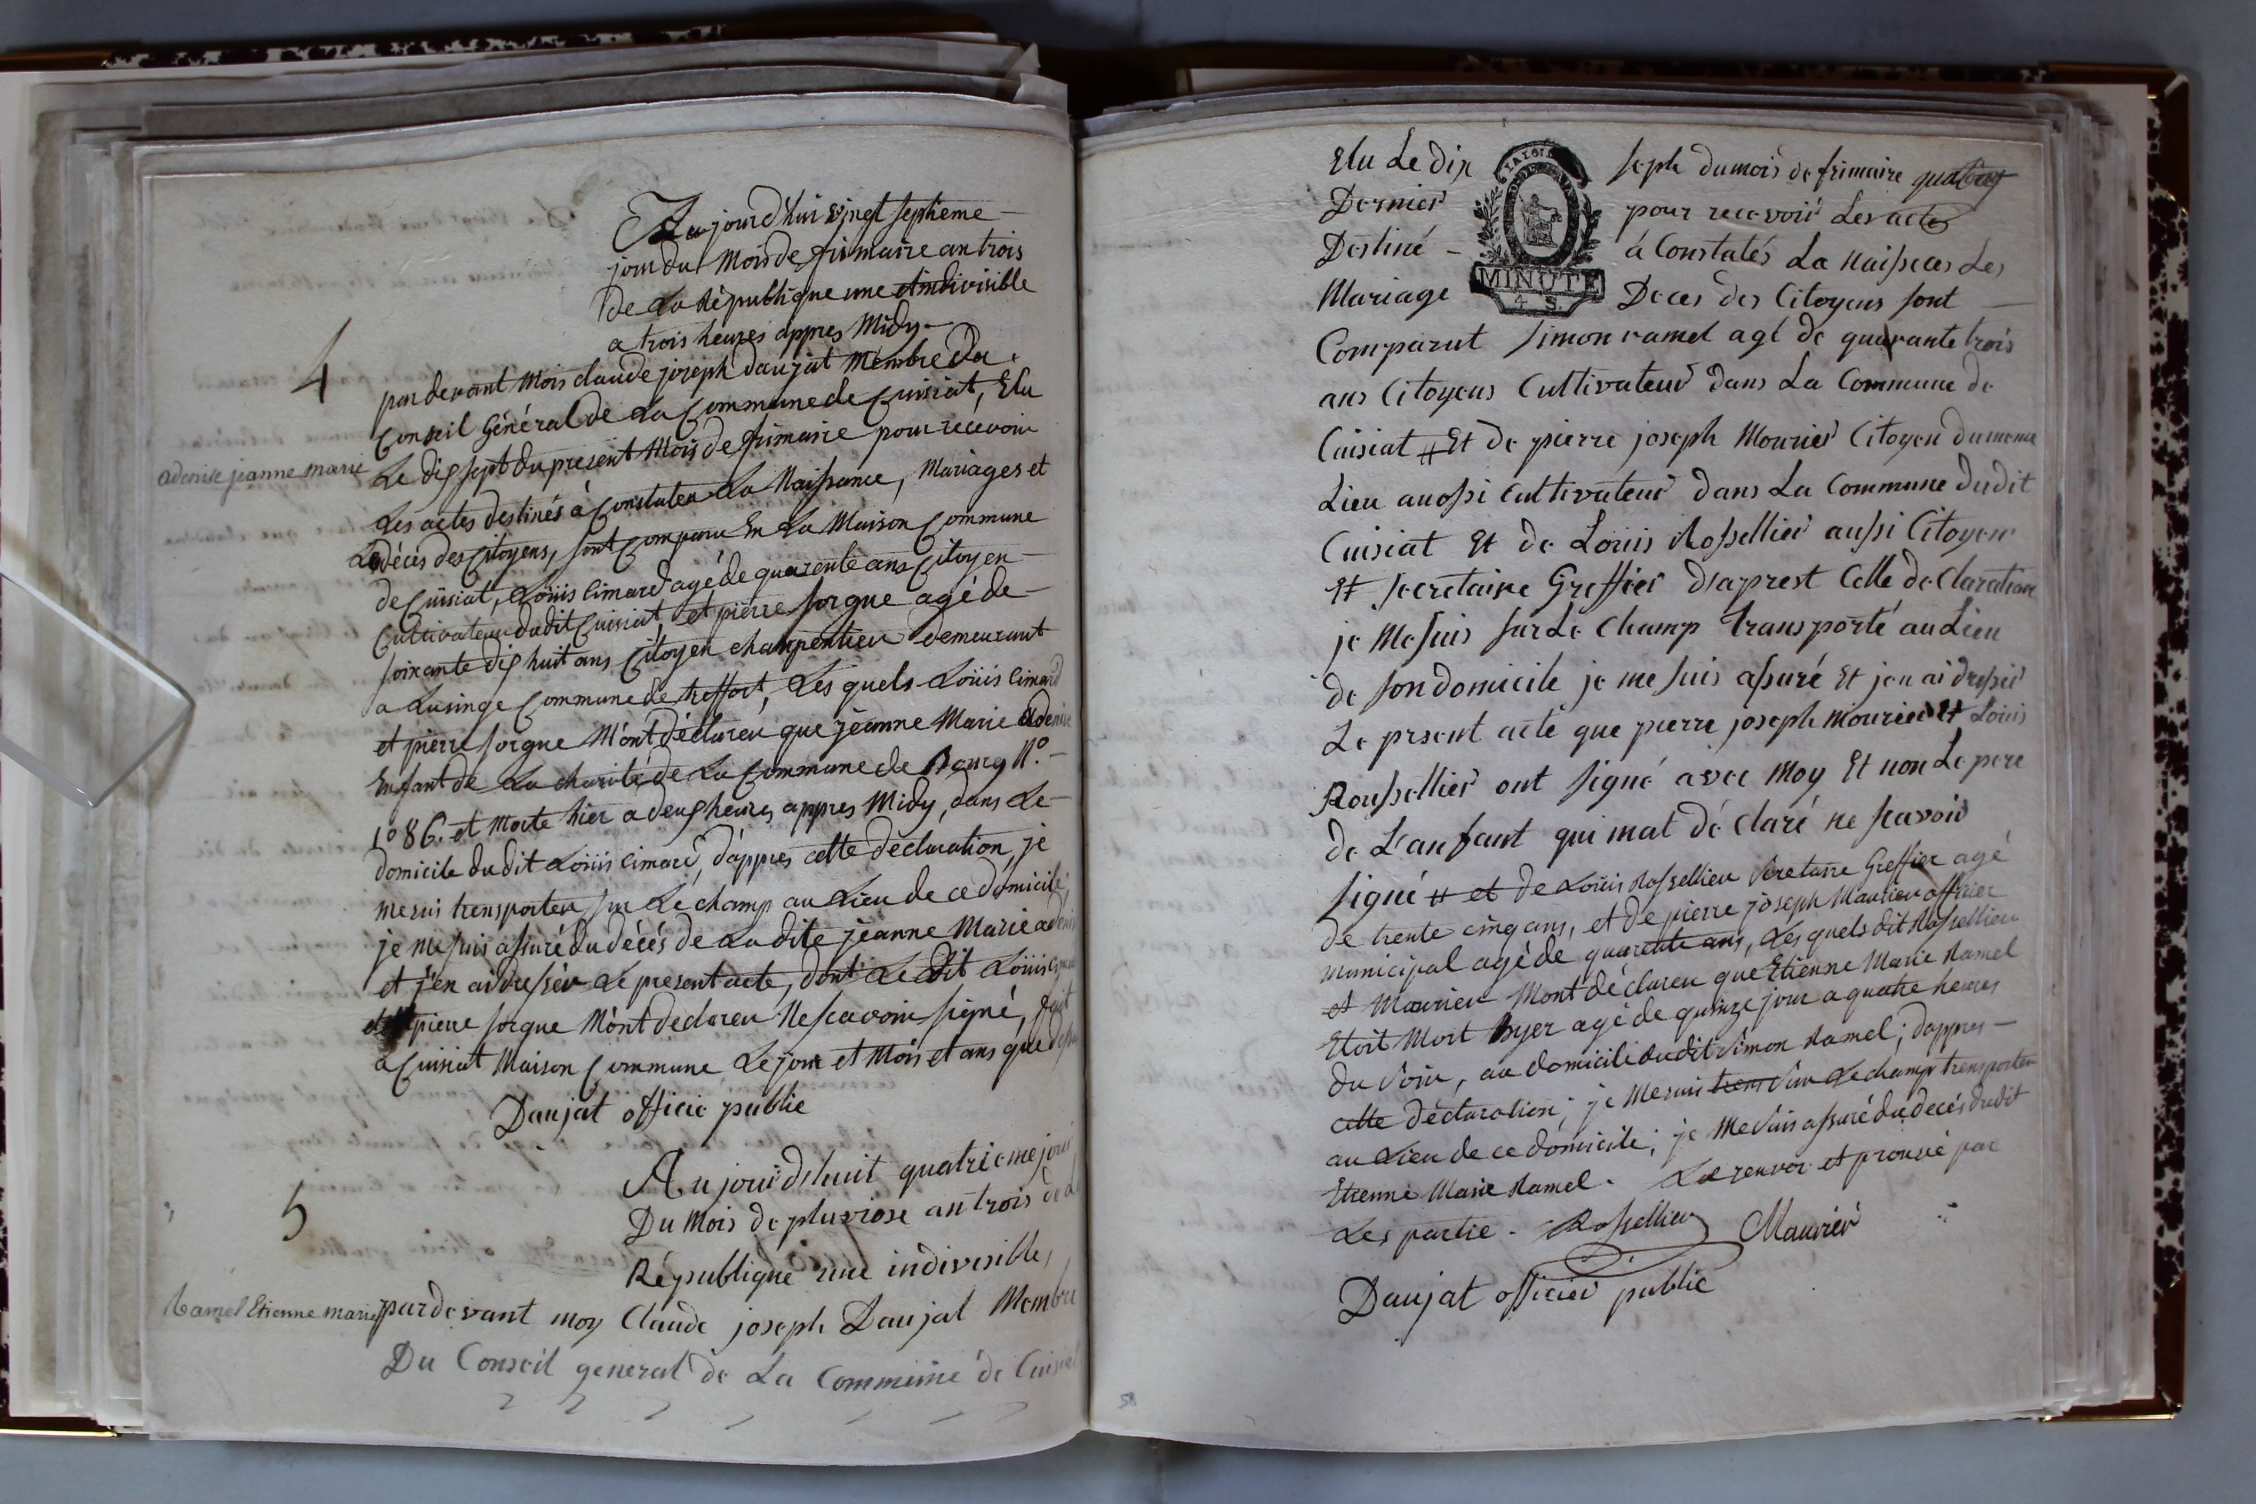 Aujourd'hui vingt septieme
jour du Mois de frimaire an trois
de La République une et indivisible
a trois heures appres Midy
4
par devant Mois claude joseph daujat Membre du
Conseil Général de La Commune de Cuisiat, Elu
Le dix sept du present Mois de frimaire pour recevoir
adenise jeanne marie
Les actes destinés à Constater La Naissance, Mariages et
Le décès des Citoyens, sont Comparu En La Maison Commune
de Cuisiat, Loüis Cimard agé de quarente ans Citoyen
Cultivateur dudit Cuisiat, et pierre sorgue agé de
soixante dix huit ans Citoyen charpentier demeurant
a Lusinge Commune de treffort, Les quels Loüis Cimard
et pierre sorgue M'ont déclarer que jeanne Marie adenise
Enfant de La charité de La Commune de Bourg N.º
1086. et Morte hier a deux heures appres Midy, dans Le
domicile dudit Loüis Cimard, d'appres cette declaration, je
me suis transporter sur Le champ au Lieu de ce domicile,
je me suis assuré du décés de Ladite jeanne Marie adenise
et j'en ai dresser Le present acte, dont Le dit Loüis
pierre sorgue M'ont declarer Ne scavoir signé, fait
a Cuisiat Maison Commune Le jour et Mois et ans que
Daujat officié public
Aujour dshuit quatrieme jour
5
Du Mois de pluviose an trois de La
République une indivisible,
Ramel Etienne marie
pardevant moy Claude joseph Daujat Membre
Du Conseil general de La Commune de Cuisiat
Elu Le dix seph du mois de frimaire
Dernier pour recevoir Les actes
Destiné à Constatés La Naissces Les
Mariage Deces des Citoyens sont
MINUTE
4 S
Comparut simon ramel agé de quarante trois
ans Citoyens Cultivateur dans La Commune de
Cuisiat # Et de pierre joseph Mourier Citoyen du meme
Lieu auossi Cultivateur dans La Commune dudit
Cuisiat Et de Loüis Rossellier aussi Citoyen
Et secretaire Greffier dsaprest Celle de Claration
je Me suis sur Le Champ transporté au Lieu
de son domicile je me suis assuré Et jen ai dressér
Le prsent acte que pierre joseph mourier Et Loüis
Roussellier ont signé avec Moy Et non Le pere
de L'anfant qui mat dé claré ne scavoir
signé # et de Loüis Rossellier Secretaire Greffier agé
de trente cinq ans, et de pierre joseph Maurier officier
municipal agé de quarente ans, Les quels dit Rossellier
et Maurier M'ont déclarer que Etienne Marie Ramel
Etoit Mort hyer agé de quinze jour a quatre heures
du Soir, au domicile dudit Simon Ramel; dappres
cette déclaration; je me suis trens sur Le champ transporter
au Lieu de ce domicile; je Me suis assuré du decés dudit
Etienne Marie Ramel. Le renvoi et prouvé par
Les partie. Rossellier Maurier
Daujat officier public
58